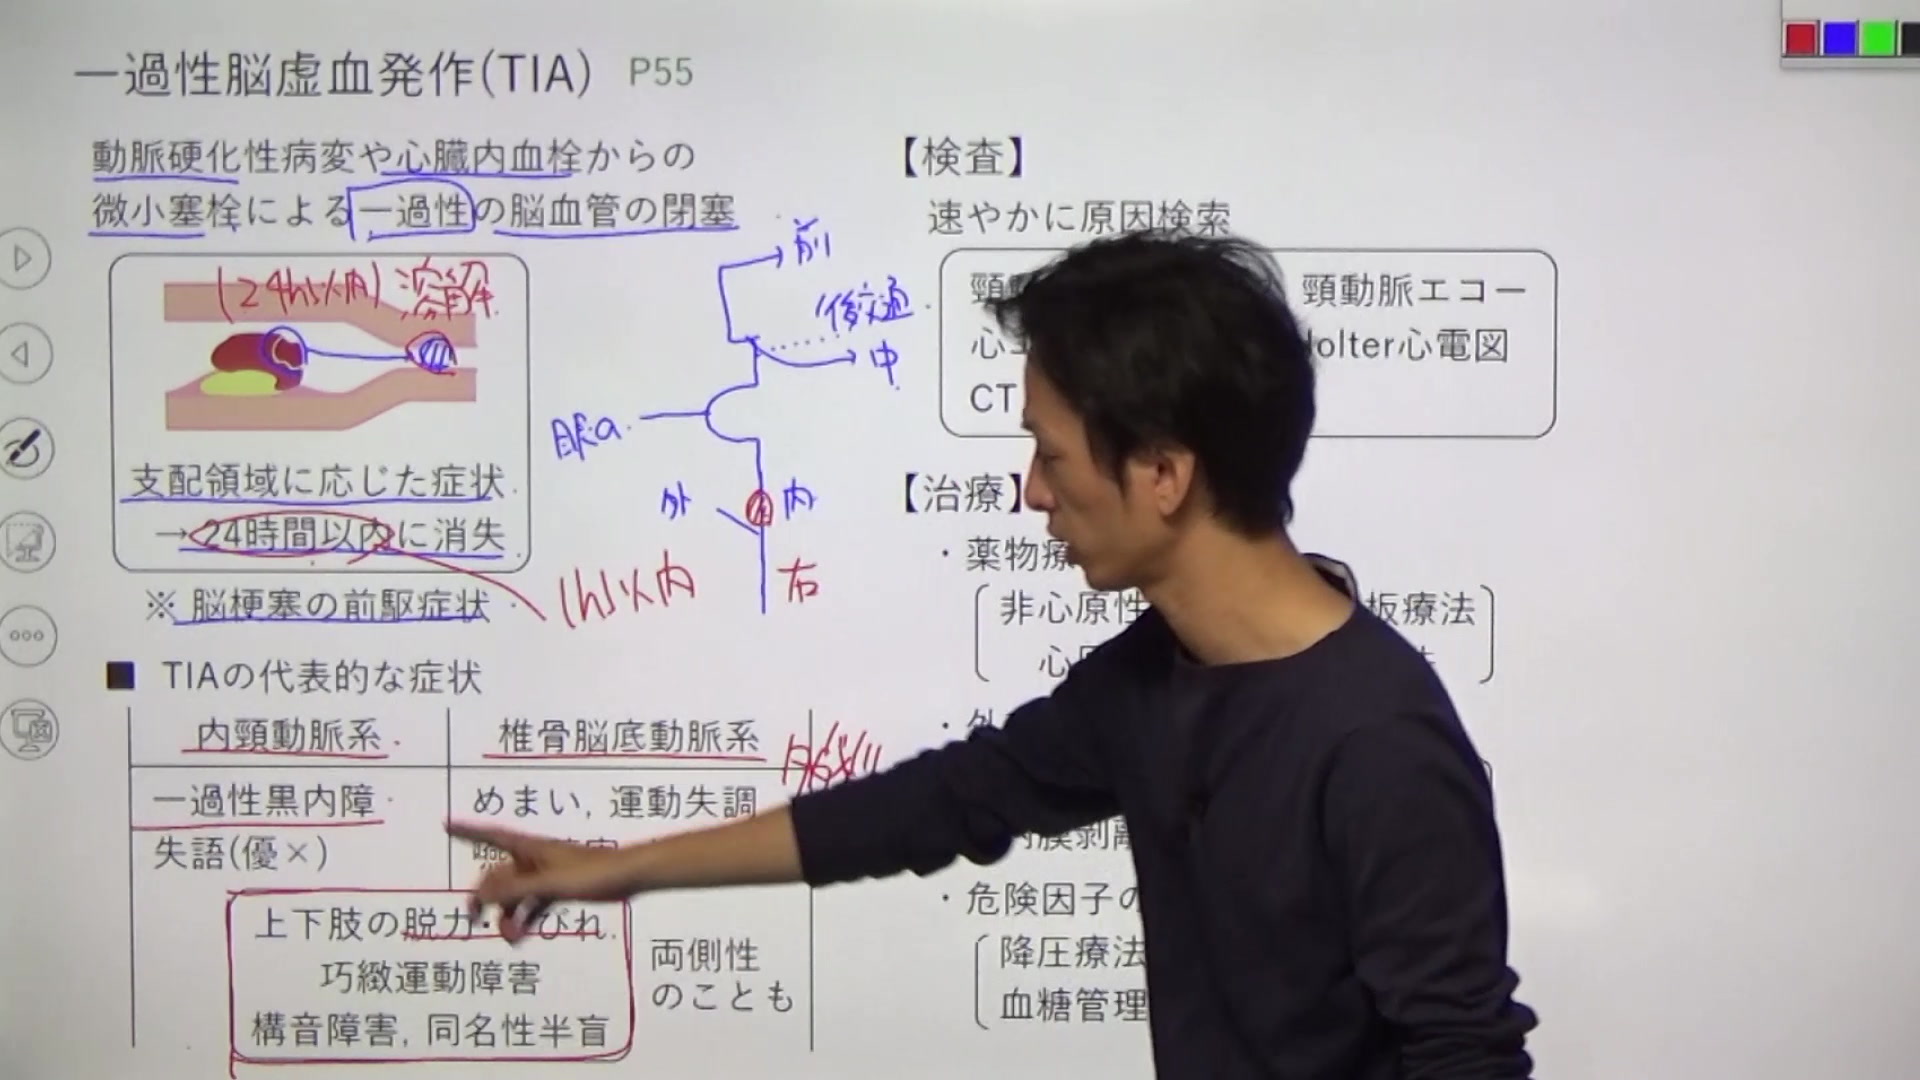 一過性脳虚血発作(TIA) P55
動脈硬化性病変や心臓内血栓からの
微小塞栓による一過性の脳血管の閉塞
(24hs以内) 溶解
支配領域に応じた症状
→24時間以内に消失
※ 脳梗塞の前駆症状
1hs以内
前
後交通
中
眼a.
外
内
右
■ TIAの代表的な症状
内頸動脈系
椎骨脳底動脈系
一過性黒内障
めまい, 運動失調
失語(優×)
上下肢の脱力・びれ
巧緻運動障害
構音障害, 同名性半盲
両側性
のことも
【検査】
速やかに原因検索
頸動脈エコー
心
Holter心電図
CT
【治療】
・薬物療
非心原性
板療法
心
・外
内膜剥離
・危険因子の
降圧療法
血糖管理